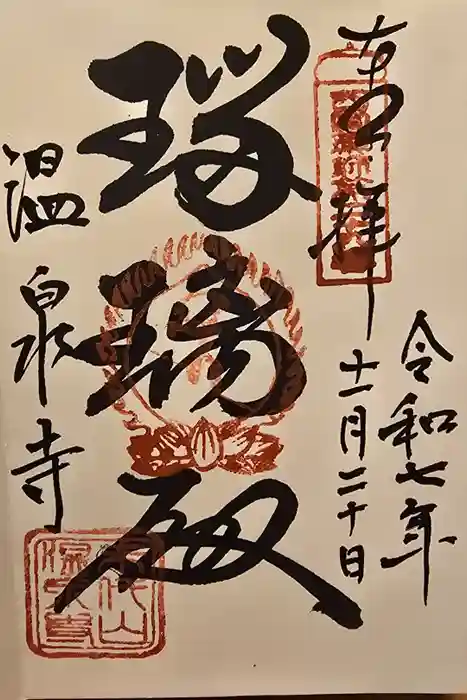 奉拝
令和七年
十一月二十日
瑠璃殿
温泉寺